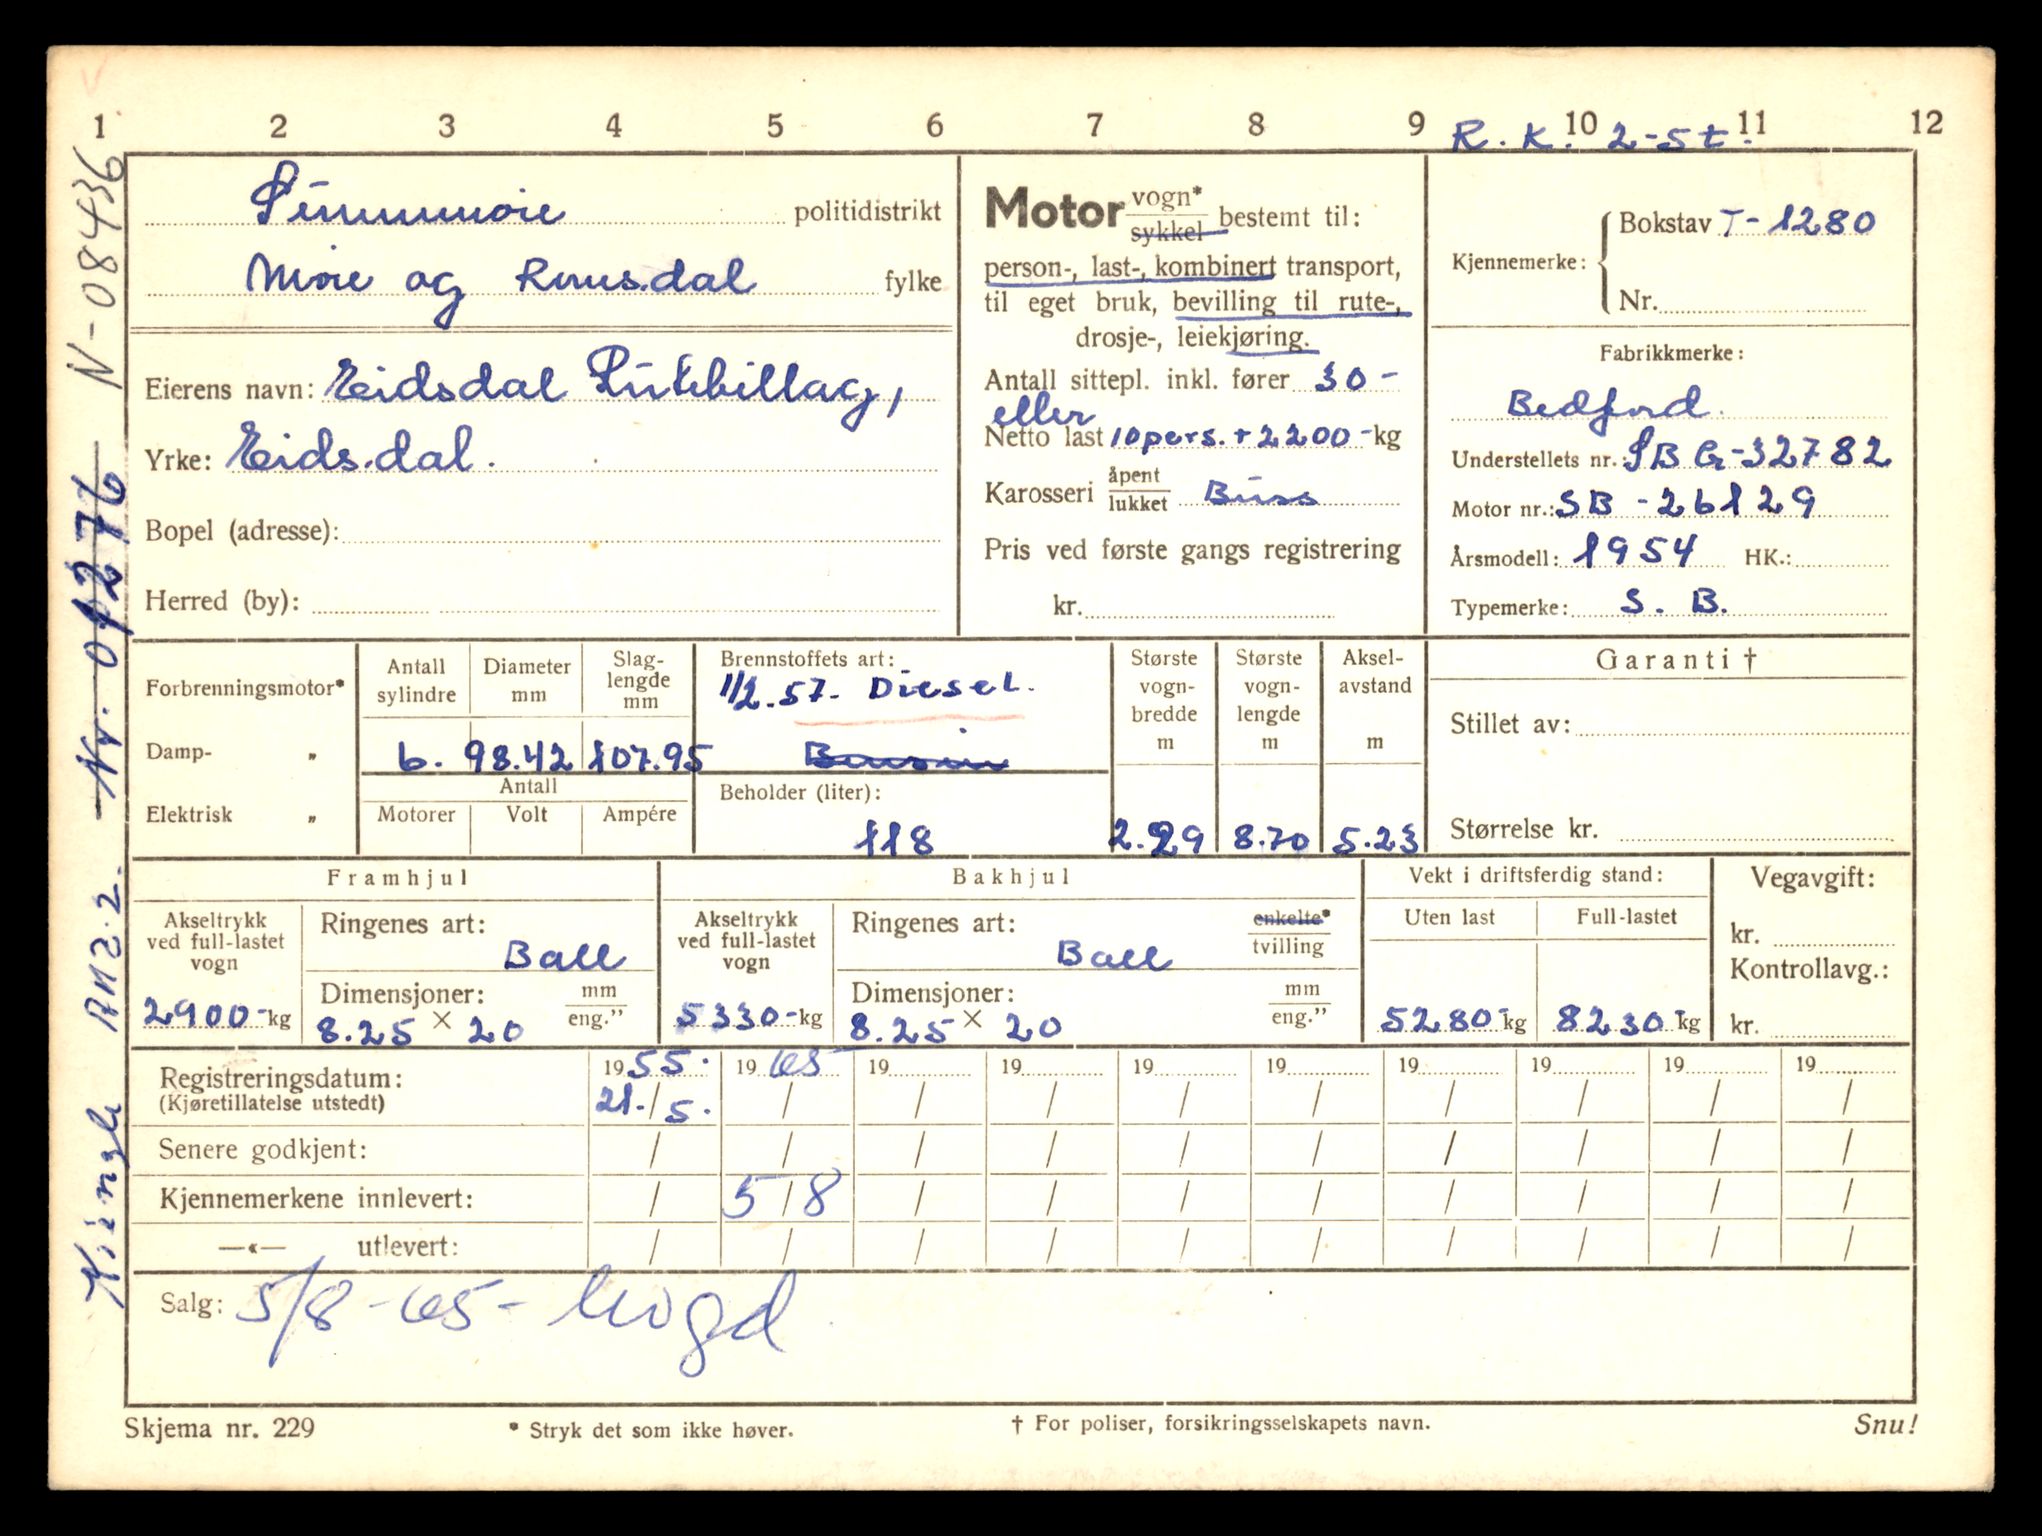 1 2 3 4 5 6 7 8 9 10 11 12
R. K. 2-st.
Sunnmøre politidistrikt
Møre og Romsdal fylke
Eierens navn: Eidsdal Rutebillag,
Yrke: Eidsdal.
Bopel (adresse):
Herred (by):
Motor vogn* sykkel bestemt til:
person-, last-, kombinert transport,
til eget bruk, bevilling til rute-,
drosje-, leiekjøring.
Antall sittepl. inkl. fører 30-
eller
Netto last 10 pers. + 2200-kg
Karosseri åpent lukket Buss
Pris ved første gangs registrering
kr.
Kjennemerke: Bokstav T-1280
Nr.
Fabrikkmerke:
Bedford.
Understellets nr.: SBG-32782
Motor nr.: SB-26129
Årsmodell: 1954 HK.:
Typemerke: S. B.
Forbrenningsmotor*
Damp- „
Elektrisk „
Antall sylindre
Diameter mm
Slag-lengde mm
6. 98.42 107.95
Antall
Motorer Volt Ampére
Brennstoffets art:
1/2.57. Diesel.
Bensin
Beholder (liter):
118
Største vogn-bredde m
2.29
Største vogn-lengde m
8.70
Aksel-avstand m
5.23
Garanti †
Stillet av:
Størrelse kr.
Framhjul
Akseltrykk ved full-lastet vogn
2900-kg
Ringenes art:
Ball
Dimensjoner: mm eng.”
8.25 × 20
Bakhjul
Akseltrykk ved full-lastet vogn
5330-kg
Ringenes art: enkelte* tvilling
Ball
Dimensjoner: mm eng.”
8.25 × 20
Vekt i driftsferdig stand:
Uten last Full-lastet
5280-kg 8230-kg
Vegavgift:
kr.
Kontrollavg.:
kr.
Registreringsdatum: 1955. 1965 19 19 19 19 19 19 19 19
(Kjøretillatelse utstedt) 21./5. / / / / / / / / /
Senere godkjent: / / / / / / / / / /
Kjennemerkene innlevert: / 5/8 / / / / / / / /
—«— utlevert: / / / / / / / / / /
Salg: 5/8-65-hogd
Skjema nr. 229 * Stryk det som ikke høver. † For poliser, forsikringsselskapets navn. Snu!
Nr. 01276 N-08436